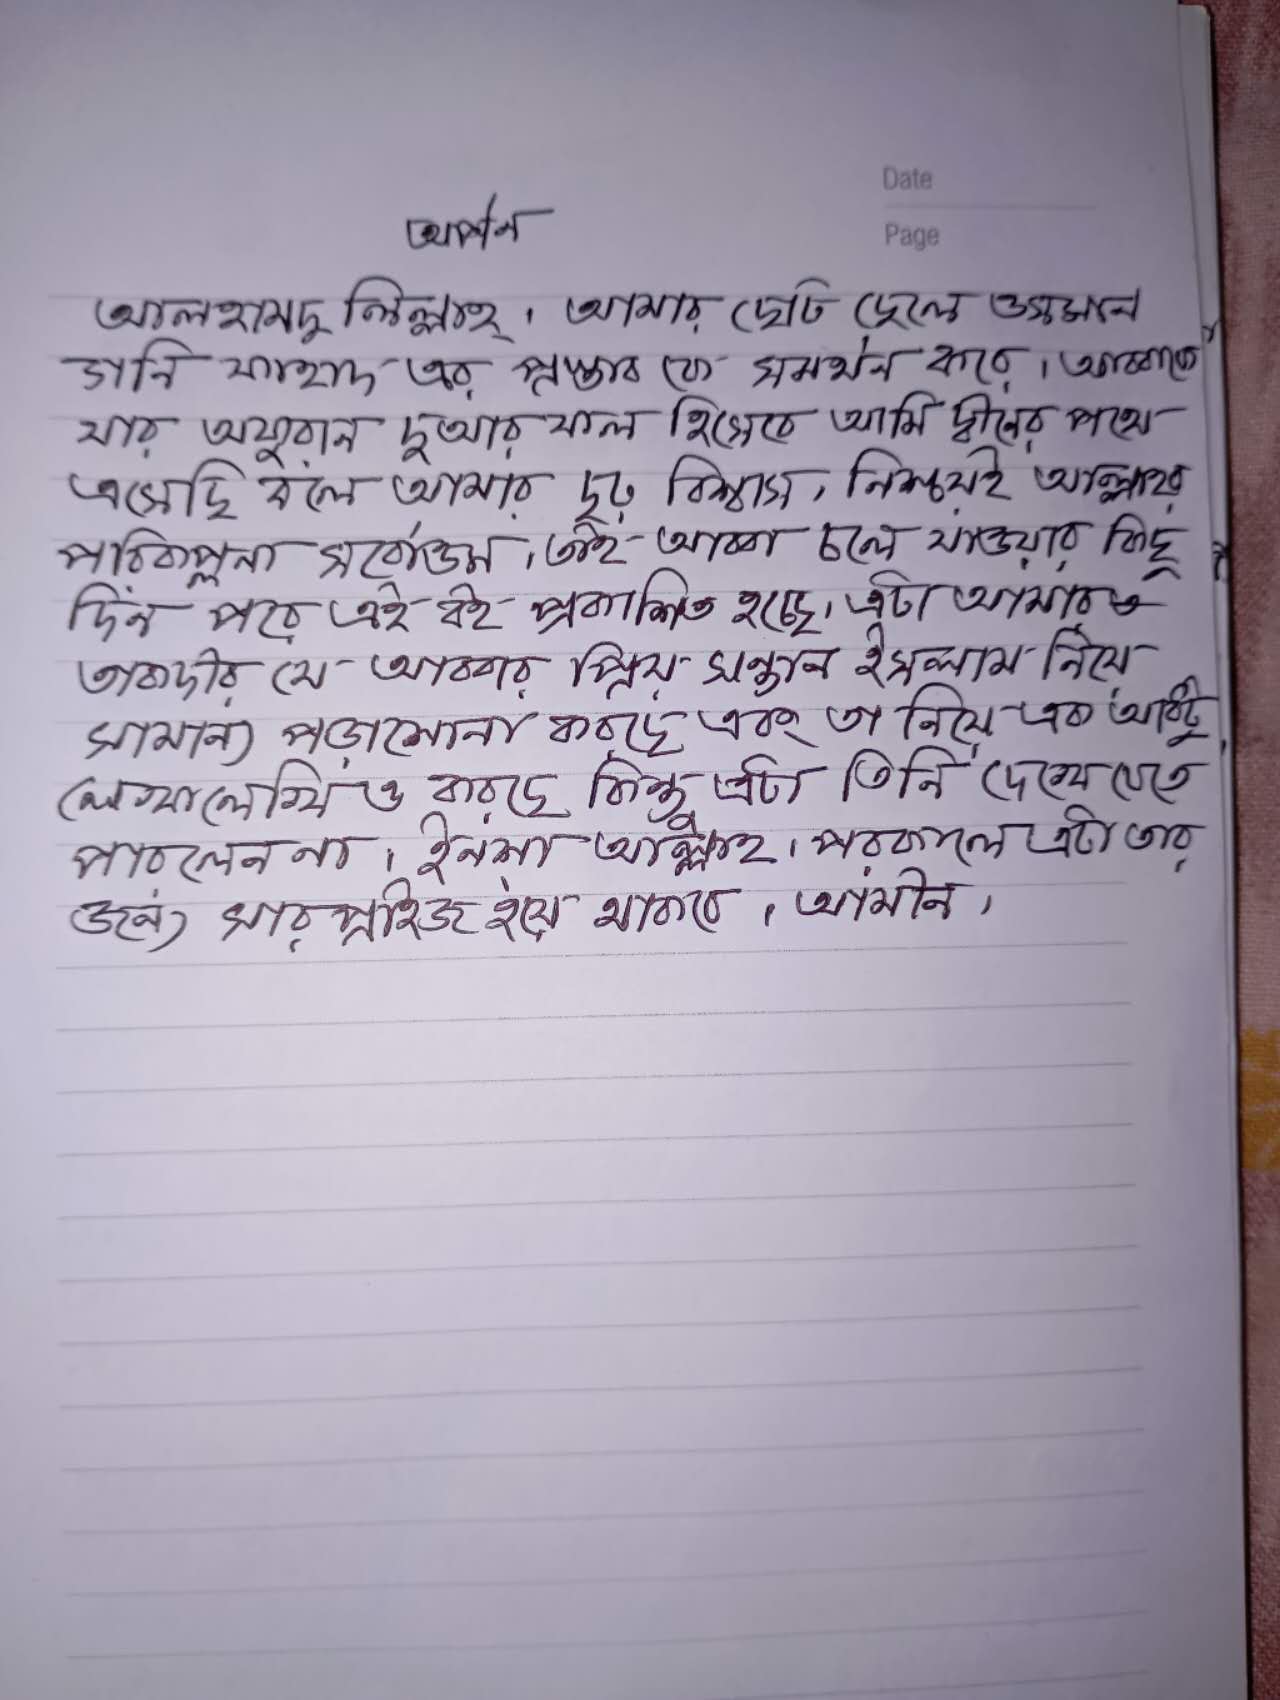 Date
Page
অর্পন
আলহামদু লিল্লাহ্। আমার ছোট ছেলে ওসমান
গনি ফাহাদ এর প্রস্তাব কে সমর্থন করে। আব্বাকে
যার অফুরান দুআর ফল হিসেবে আমি দ্বীনের পথে
এসেছি বলে আমার দৃঢ় বিশ্বাস, নিশ্চয়ই আল্লাহর
পরিকল্পনা সর্বোত্তম। তাই আব্বা চলে যাওয়ার কিছু
দিন পরে এই বই প্রকাশিত হচ্ছে। এটা আমারও
তাকদীর যে আব্বার প্রিয় সন্তান ইসলাম নিয়ে
সামান্য পড়াশোনা করছে এবং তা নিয়ে এক আধটু
লেখালেখি ও করছে কিন্তু এটা তিনি দেখে যেতে
পারলেন না। ইনশা আল্লাহ। পরকালে এটা তার
জন্য সারপ্রাইজ হয়ে থাকবে। আমীন।